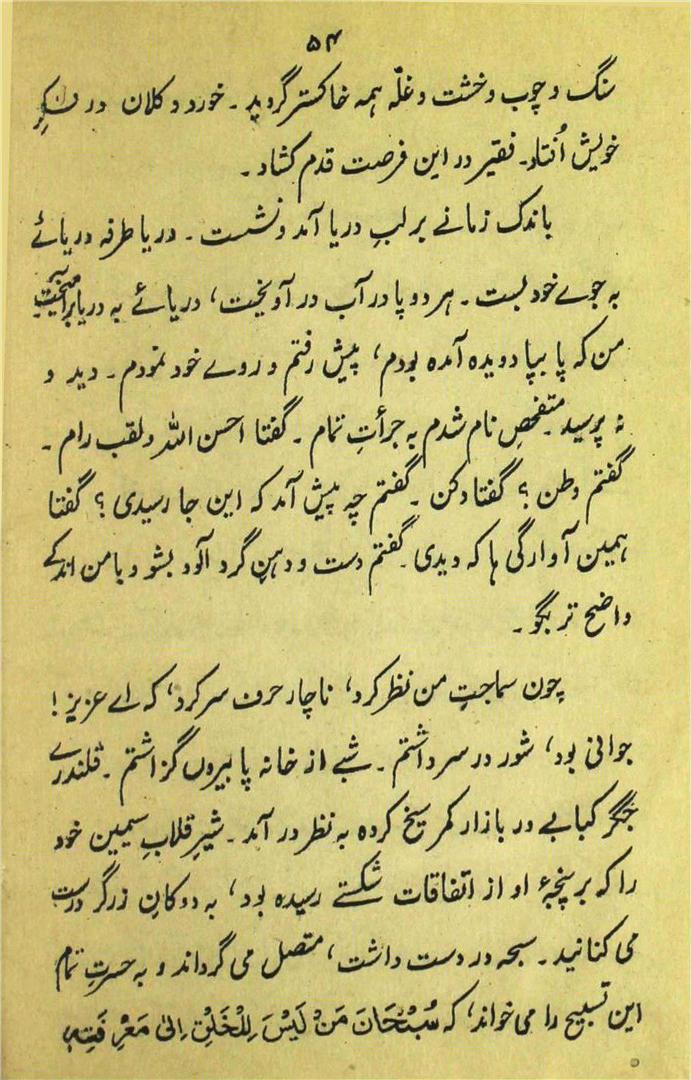 ۵۴
سنگ و چوب و خشت و غلّہ ہمہ خاکستر گردید۔ خورد و کلان در فکرِ
خویش اُفتاد۔ فقیر در این فرصت قدم کشاد۔
باندک زمانے بر لبِ دریا آمد و نشست۔ دریا طرفہ دریائے
بہ جوے خود بست۔ ہر دو پا در آب در آویخت، دریائے بہ دریا برآمیخت
من کہ پا بپا دویدہ آمدہ بودم، پیش رفتم و روے خود نمودم۔ دید و
نہ پرسید۔ متفحصِ نام شدم بہ جرأتِ تمام۔ گفتا احسن اللہ و لقب رام۔
گفتم وطن؟ گفتا دکن۔ گفتم چہ پیش آمد کہ این جا رسیدی؟ گفتا
ہمین آوارگی ہا کہ دیدی۔ گفتم دست و دہنِ گرد آلود بشو و با من اندکے
واضح تر بگو۔
چون سماجتِ من نظر کرد، ناچار حرف سر کرد، کہ اے عزیز!
جوانی بود، شور در سر داشتم۔ شبے از خانہ پا بیروں گزاشتم۔ قلندرے
جگر کبابے در بازار کمر سیخ کردہ بہ نظر در آمد۔ شیرِ قلابِ سیمین خود
را کہ بر پنجۂ او از اتفاقات شکستے رسیدہ بود، بہ دوکانِ زرگر درست
می کنانید۔ سبحہ در دست داشت، متصل می گرداند و بہ حسرتِ تمام
این تسبیح را می خواند، کہ سُبْحَانَ مَنْ لَیْسَ لِلْخَلْقِ اِلیٰ مَعْرِفَتِہٖ